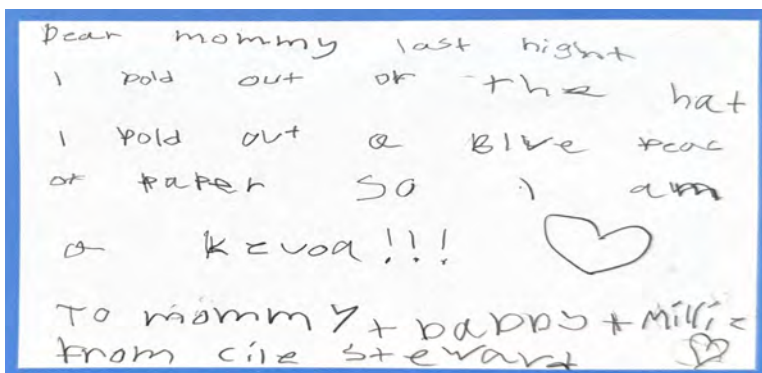 Dear mommy last night
I pold out of the hat
I pold out a Blve peac
of paper so i am
a Kevoa!!!
To mommy + Dabby + Millie
from cile stewart